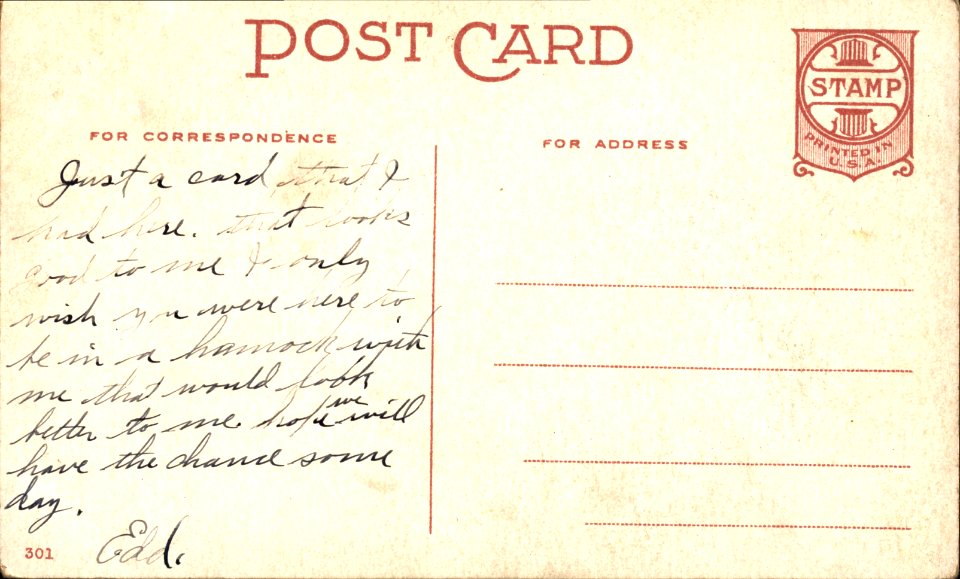 POST CARD
STAMP
PRINTED IN
U.S.A.
FOR CORRESPONDENCE
FOR ADDRESS
Just a card that I
had here. that looks
good to me I only
wish you were here to
be in a hamock with
me that would look
better to me. hope we will
have the chance some
day.
Edd.
301